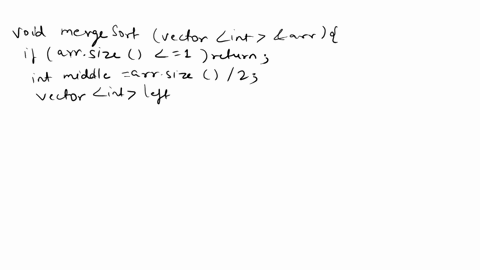 void mergeSort (vector <int> &arr){
if (arr.size () <=1 )return ;
int middle =arr.size () /2;
vector <int> left